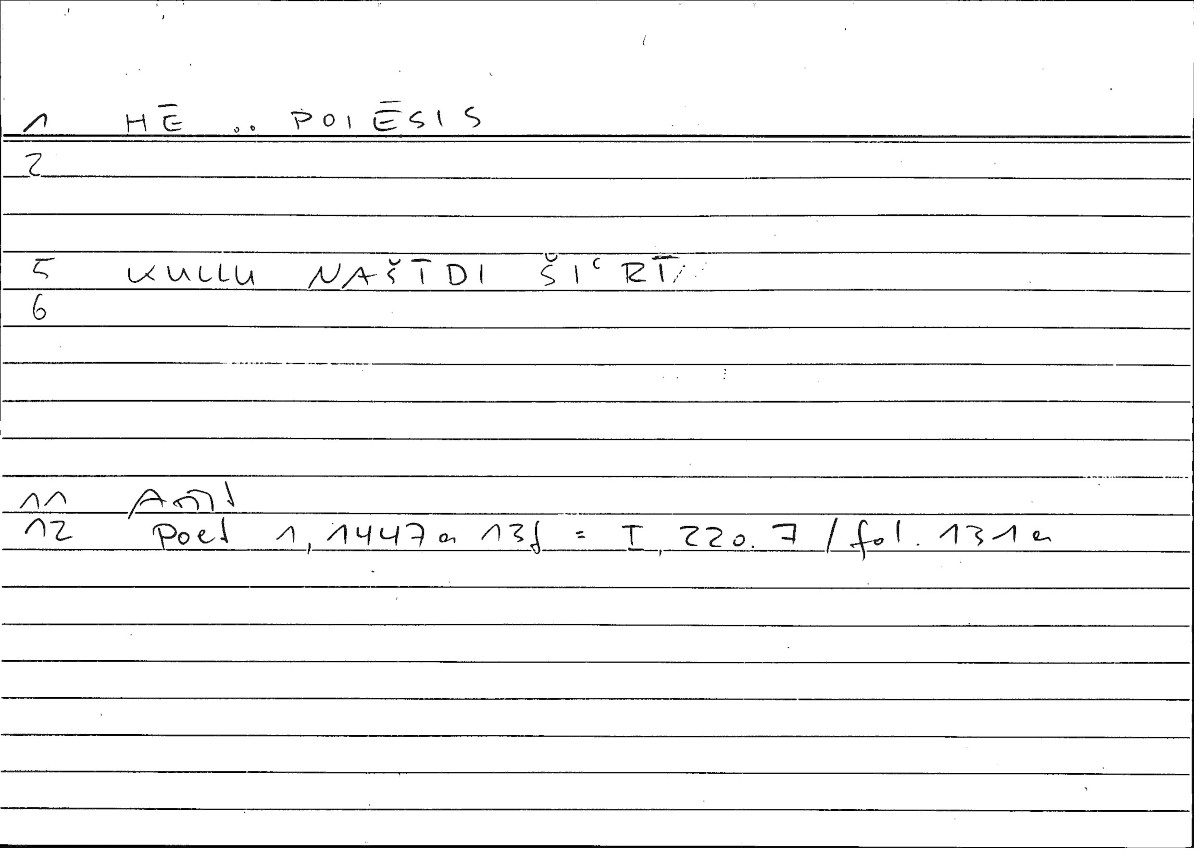 1 HĒ .. POIĒSIS
2
5 KULLU NAŠĪDI ŠIʿRĪ
6
11 Arist
12 Poet 1, 1447a 13f = I, 220.7 / fol. 131a